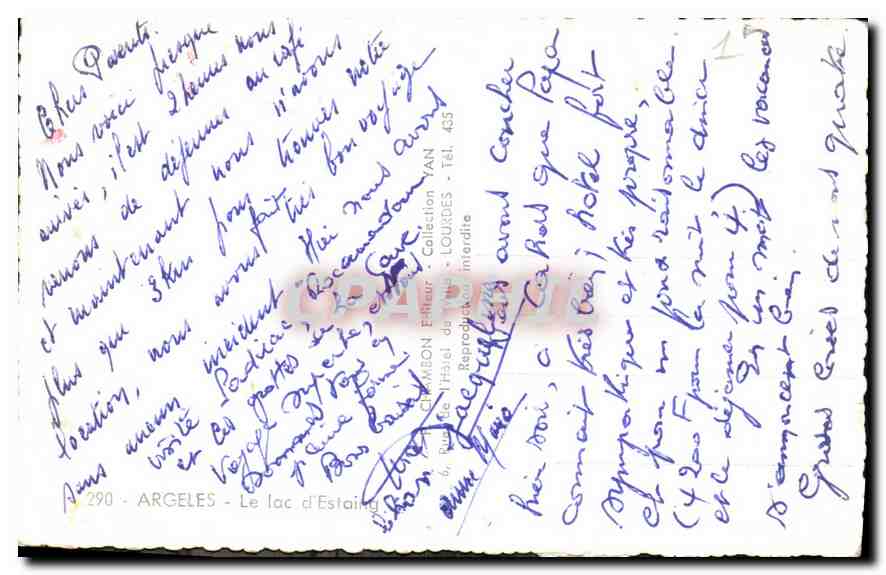 Chers Parents.
Nous voici presque
arrivés, il est 2 heures nous
venons de déjeuner au café
et maintenant nous n'avons
plus que 3 km pour trouver notre
location, nous avons fait très bon voyage
sans aucun incident. Hier nous avons
visité Padirac, Rocamadour
et les grottes
Voyage superbe,
pleine forme
Bons baisers
Jacqueline
hier soir, à Cahors que Papa
connait très bien, hôtel fort
sympathique et très propre,
et pour un prix raisonnable.
(4200 F pour la nuit le diner
et le déjeuner pour 4)
les vacances
s'annoncent bien.
Grosses bises de nous quatre.
avons coucher
CHAMBON Editeur - Collection YAN
6, Rue de l'Hôtel de - LOURDES - Tél. 435
Reproduction interdite
290 - ARGELES - Le lac d'Estaing
CPAPHIL
1